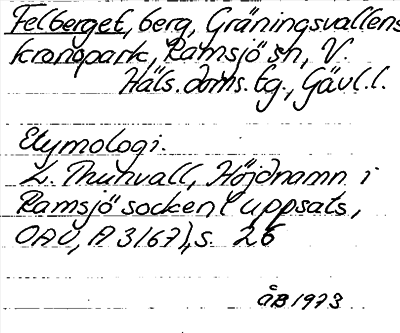 Felberget, berg, Gräningsvallens
kronopark, Ramsjö sn, V.
Häls. doms. tg., Gävl. l.
Etymologi.
L. Thunvall, Höjdnamn i
Ramsjö socken (uppsats,
OAU, A 3167), s. 26
åB 1973